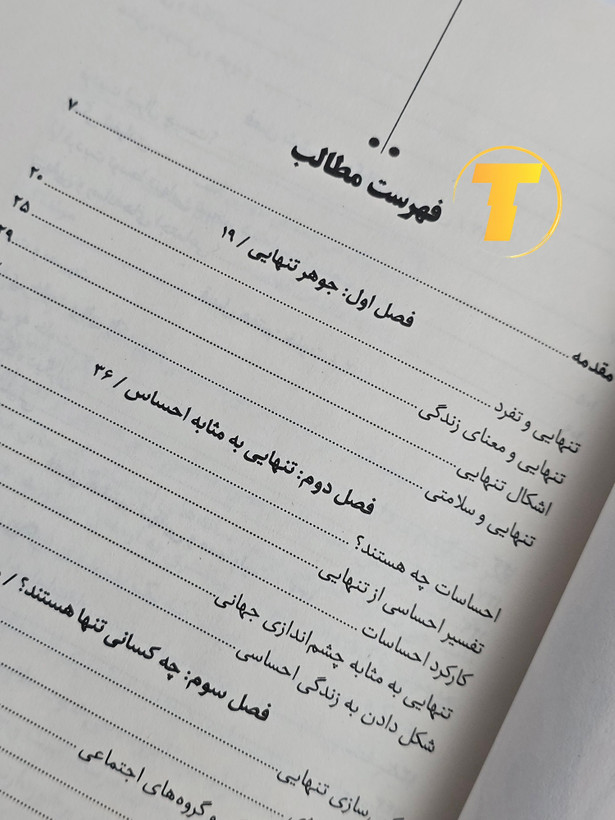 T
فهرست مطالب
مقدمه ۷
فصل اول: جوهر تنهایی / ۱۹
تنهایی و تفرد ۲۰
تنهایی و معنای زندگی ۲۵
اشکال تنهایی ۲۹
تنهایی و سلامتی
فصل دوم: تنهایی به مثابه احساس / ۳۶
احساسات چه هستند؟
تفسیر احساسی از تنهایی
کارکرد احساسات
تنهایی به مثابه چشم‌اندازی جهانی
شکل دادن به زندگی احساسی
فصل سوم: چه کسانی تنها هستند؟ /
سازی تنهایی
و گروه‌های اجتماعی